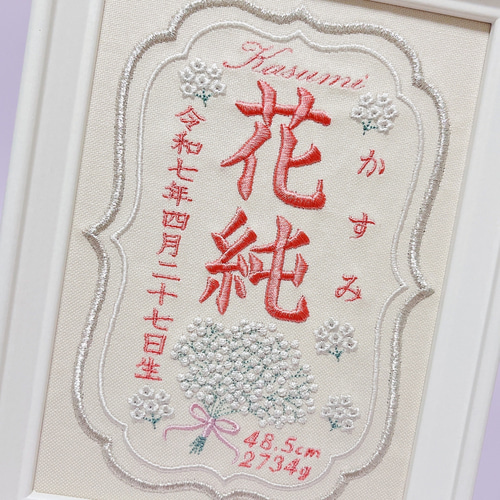 Kasumi
花純
かすみ
令和七年四月二十七日生
48.5cm
2734g